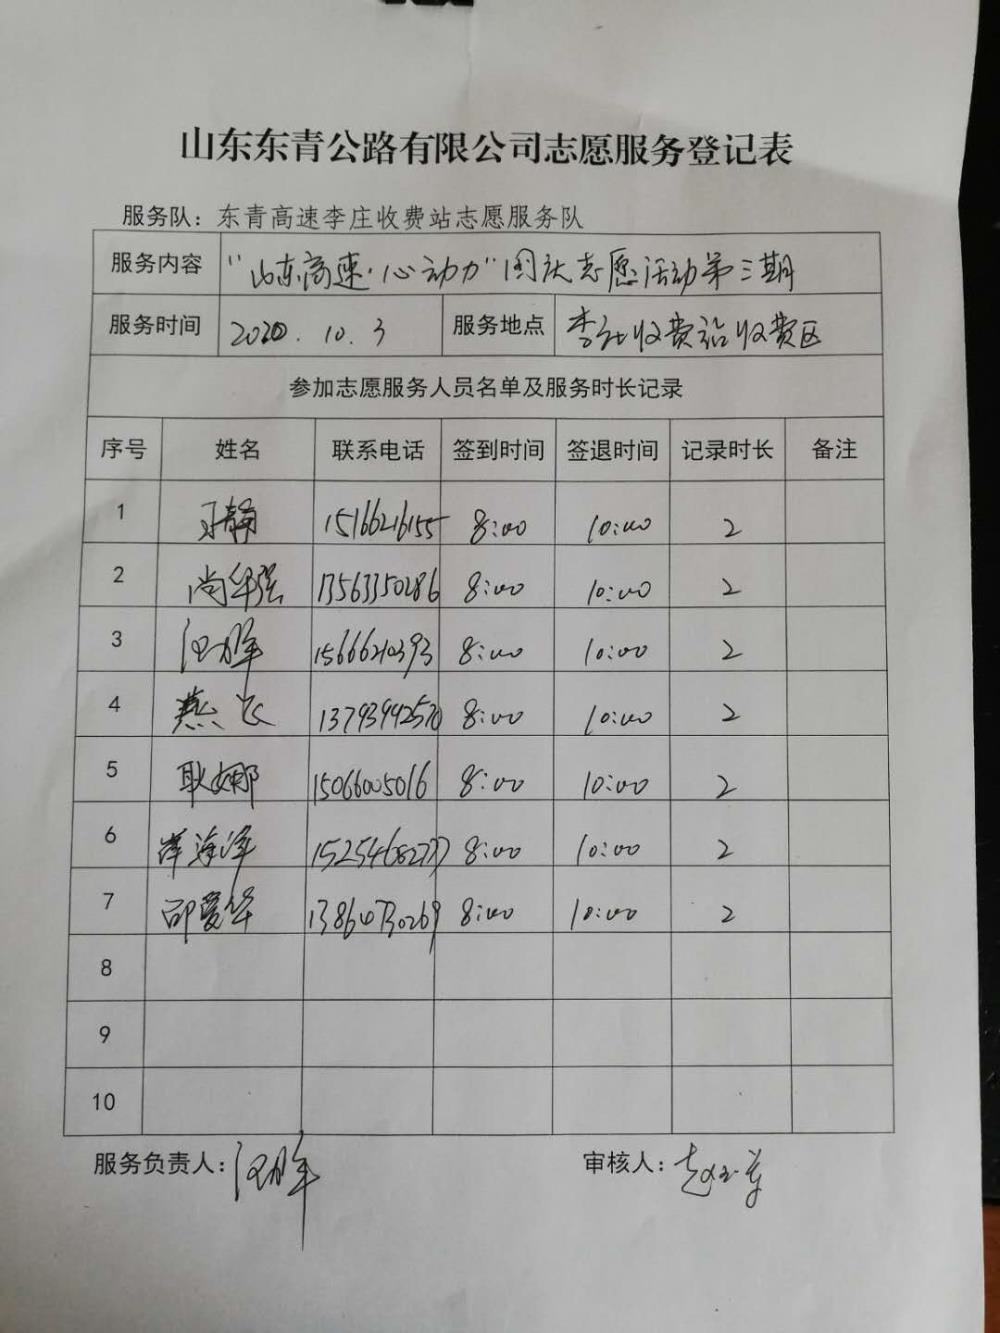 山东东青公路有限公司志愿服务登记表
服务队：东青高速李庄收费站志愿服务队
服务内容 “山东高速·心动力”国庆志愿活动第三期
服务时间 2020.10.3 服务地点 李庄收费站收费区
参加志愿服务人员名单及服务时长记录
序号 姓名 联系电话 签到时间 签退时间 记录时长 备注
1 王静 15166216155 8:00 10:00 2
2 尚华强 13563350286 8:00 10:00 2
3 15666210393 8:00 10:00 2
4 燕飞 13793942570 8:00 10:00 2
5 耿娜 15066005016 8:00 10:00 2
6 海泽 8:00 10:00 2
7 邵爱华 13864730269 8:00 10:00 2
8
9
10
服务负责人： 审核人：